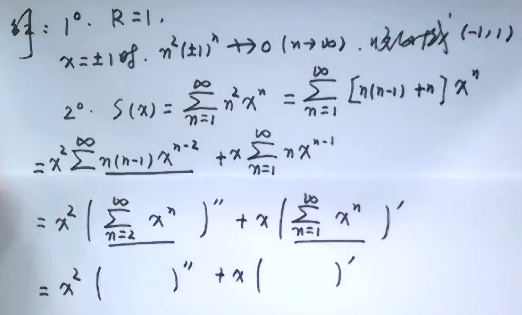 解: 1°. R=1.
x=±1时. n²(±1)ⁿ ↛ 0 (n→∞). 收敛域(-1,1)
2°. S(x) = ∑_{n=1}^{∞} n²xⁿ = ∑_{n=1}^{∞} [n(n-1)+n] xⁿ
= x² ∑^{∞} n(n-1)xⁿ⁻² + x ∑_{n=1}^{∞} n xⁿ⁻¹
= x² ( ∑_{n=2}^{∞} xⁿ )'' + x ( ∑_{n=1}^{∞} xⁿ )'
= x² ( )'' + x ( )'